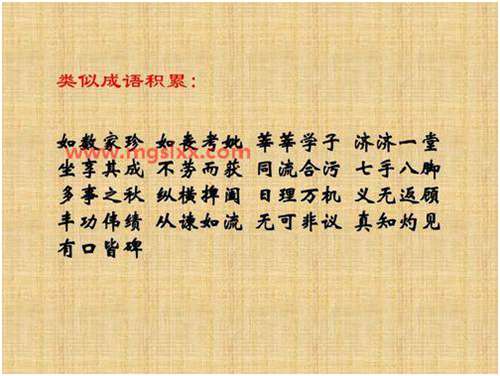 类似成语积累：
如数家珍 如丧考妣 莘莘学子 济济一堂
www.mgsixx.com
坐享其成 不劳而获 同流合污 七手八脚
多事之秋 纵横捭阖 日理万机 义无返顾
丰功伟绩 从谏如流 无可非议 真知灼见
有口皆碑